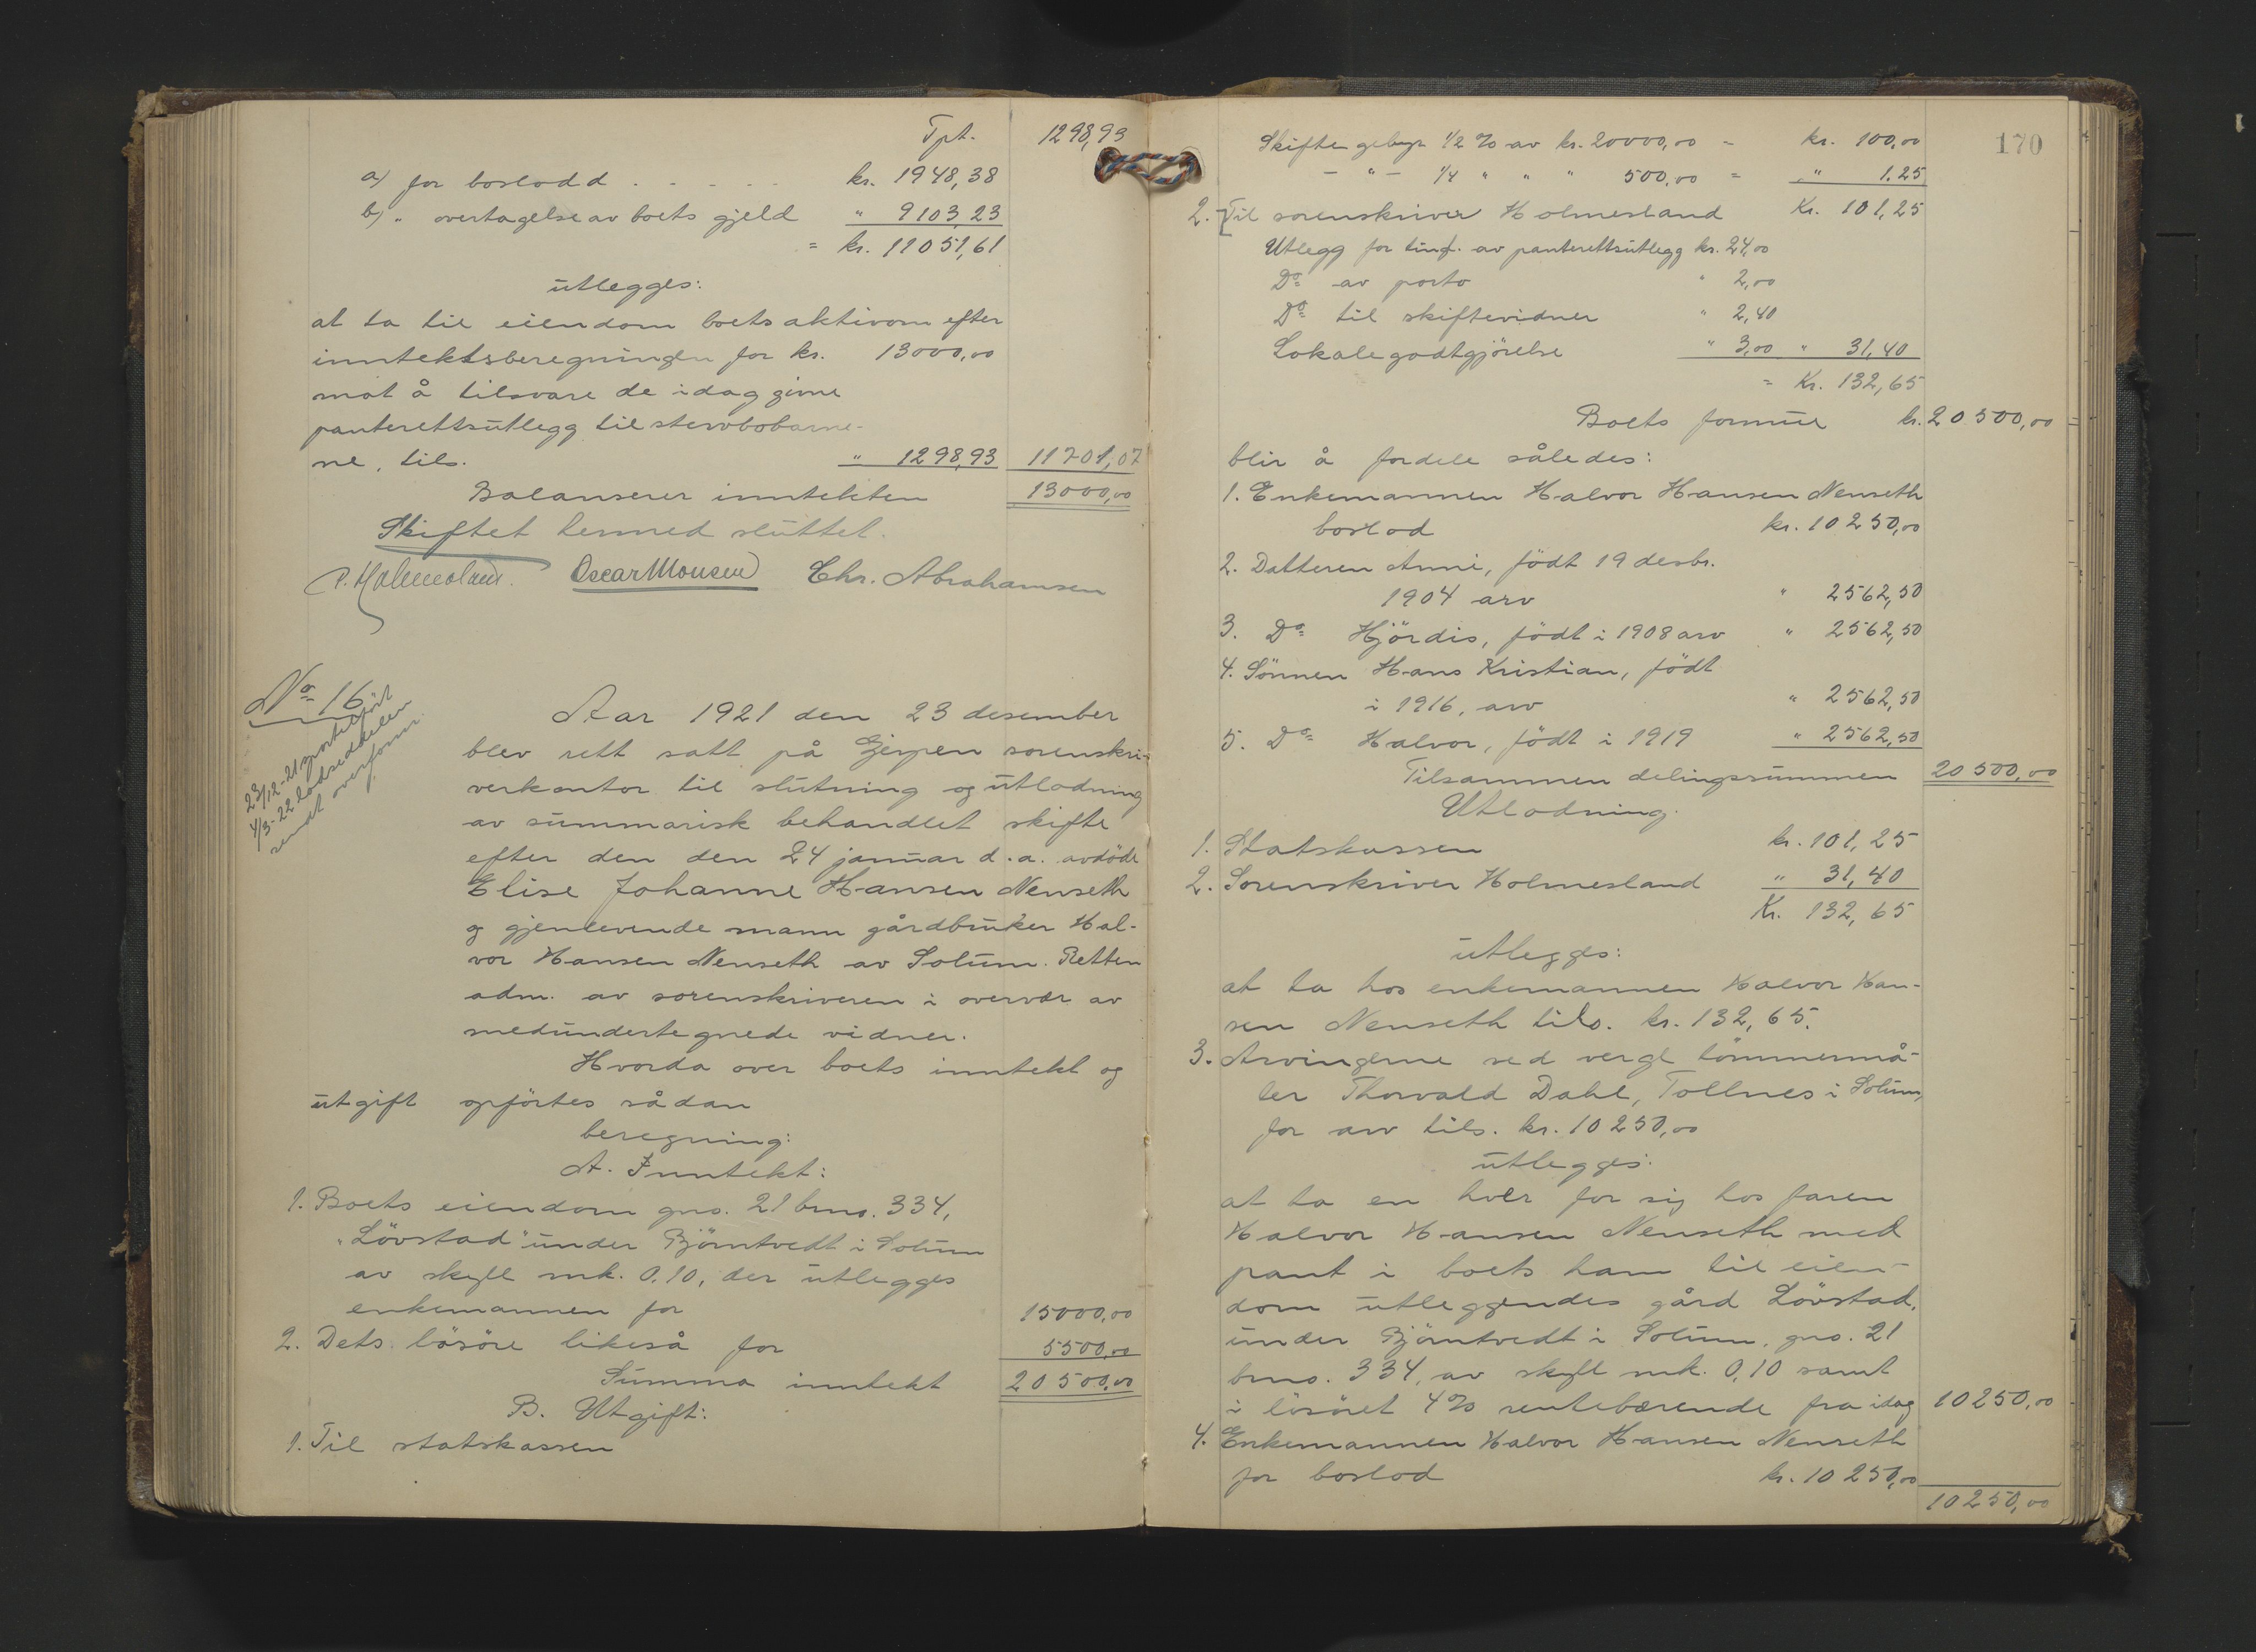 Tpt. 1298,93
a) for boslodd . . . . . kr. 1948,38
b) „ overtagelse av boets gjeld „ 9103,23
= kr. 11051,61
utlegges:
at ta til eiendom boets aktivom efter
inntektsberegningen for kr. 13000,00
mot å tilsvare de idag givne
panterettsutlegg til stervbobarne-
ne, tils. „ 1298,93 11701,07
Balanserer inntekten 13000,00
Skiftet hermed sluttet.
P. Holmesland. Oscar Monsen Chr. Abrahamsen
No 16
23/12-21 sportelført
4/3-22 lodseddelen
sendt overform.
Aar 1921 den 23 desember
blev rett satt på Gjerpen sorenskri-
verkontor til slutning og utlodning
av summarisk behandlet skifte
efter den den 24 januar d.a. avdöde
Elise Johanne Hansen Nenseth
og gjenlevende mann gårdbruker Hal-
vor Hansen Nenseth av Solum. Retten
adm. av sorenskriveren i overvær av
medundertegnede vidner.
Hvorda over boets inntekt og
utgift opförtes sådan
beregning:
A. Inntekt:
1. Boets eiendom gno. 21 bno. 334,
„Lövstad" under Björntvedt i Solum
av skyll mk. 0,10, der utlegges
enkemannen for 15000,00
2. Dets lösöre likeså for 5500,00
Summa inntekt 20500,00
B. Utgift:
1. Til statskassen
170
Skiftegebyr 1/2 % av kr. 20000,00 = kr. 100,00
- " - 1/4 " " " 500,00 = „ 1.25
Kr. 101,25
2. [Til sorenskriver Holmesland
Utlegg for tingl. av panterettsutlegg kr. 24,00
Do av porto " 2,00
Do til skiftevidner " 2,40
Lokalegodtgjörelse " 3,00 " 31,40
= Kr. 132,65
Boets formue kr. 20500,00
blir å fordele således:
1. Enkemannen Halvor Hansen Nenseth
boslod kr. 10250,00
2. Datteren Anni, födt 19 desbr.
1904 arv " 2562,50
3. Do Hjördis, födt i 1908 arv " 2562,50
4. Sönnen Hans Kristian, födt
i 1916, arv " 2562,50
5. Do Halvor, födt i 1919 " 2562,50
Tilsammen delingssummen 20500,00
Utlodning.
1. Statskassen kr. 101,25
2. Sorenskriver Holmesland " 31,40
Kr. 132,65
utlegges:
at ta hos enkemannen Halvor Han-
sen Nenseth tils. kr. 132,65.
3. Arvingerne ved verge tömmermå-
ler Thorvald Dahl, Tollnes i Solum,
for arv tils. kr. 10250,00
utlegges:
at ta en hver for sig hos faren
Halvor Hansen Nenseth med
pant i boets ham til eien-
dom utleggendes gård Lövstad,
under Björntvedt i Solum, gno. 21
bno. 334, av skyll mk. 0,10 samt
i lösöret 4% rentebærende fra idag 10250,00
4. Enkemannen Halvor Hansen Nenseth
for boslod kr. 10250,00
10250,00